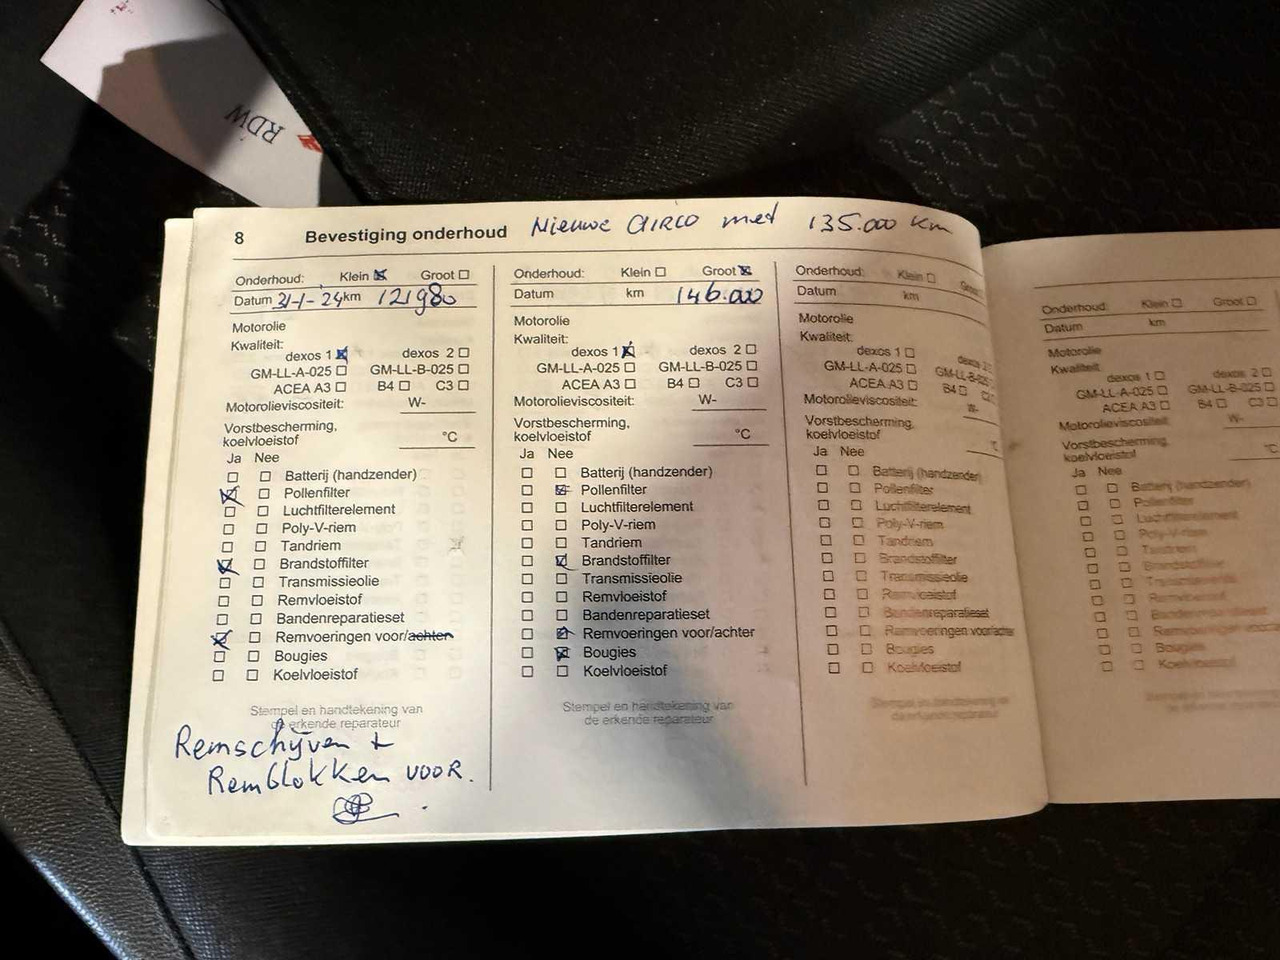 RDW
8 Bevestiging onderhoud Nieuwe AIRCO met 135.000 Km
Onderhoud: Klein ☒ Groot ☐
Datum 31-1-24 km 121980
Motorolie
Kwaliteit:
dexos 1 ☒ dexos 2 ☐
GM-LL-A-025 ☐ GM-LL-B-025 ☐
ACEA A3 ☐ B4 ☐ C3 ☐
Motorolieviscositeit: W-
Vorstbescherming,
koelvloeistof °C
Ja Nee
☐ ☐ Batterij (handzender)
☒ ☐ Pollenfilter
☐ ☐ Luchtfilterelement
☐ ☐ Poly-V-riem
☐ ☐ Tandriem
☒ ☐ Brandstoffilter
☐ ☐ Transmissieolie
☐ ☐ Remvloeistof
☐ ☐ Bandenreparatieset
☒ ☐ Remvoeringen voor/achter
☐ ☐ Bougies
☐ ☐ Koelvloeistof
Stempel en handtekening van
de erkende reparateur
Remschijven +
Remblokken VOOR.
Onderhoud: Klein ☐ Groot ☒
Datum km 146.000
Motorolie
Kwaliteit:
dexos 1 ☒ dexos 2 ☐
GM-LL-A-025 ☐ GM-LL-B-025 ☐
ACEA A3 ☐ B4 ☐ C3 ☐
Motorolieviscositeit: W-
Vorstbescherming,
koelvloeistof °C
Ja Nee
☐ ☐ Batterij (handzender)
☐ ☒ Pollenfilter
☐ ☐ Luchtfilterelement
☐ ☐ Poly-V-riem
☐ ☐ Tandriem
☐ ☒ Brandstoffilter
☐ ☐ Transmissieolie
☐ ☐ Remvloeistof
☐ ☐ Bandenreparatieset
☐ ☒ Remvoeringen voor/achter
☐ ☒ Bougies
☐ ☐ Koelvloeistof
Stempel en handtekening van
de erkende reparateur
Onderhoud: Klein ☐
Datum km
Motorolie
Kwaliteit:
dexos 1 ☐ dexos 2
GM-LL-A-025 ☐ GM-LL-B-025
ACEA A3 ☐ B4 ☐
Motorolieviscositeit: W-
Vorstbescherming,
koelvloeistof °C
Ja Nee
☐ ☐ Batterij (handzender)
☐ ☐ Pollenfilter
☐ ☐ Luchtfilterelement
☐ ☐ Poly-V-riem
☐ ☐ Tandriem
☐ ☐ Brandstoffilter
☐ ☐ Transmissieolie
☐ ☐ Remvloeistof
☐ ☐ Bandenreparatieset
☐ ☐ Remvoeringen voor/achter
☐ ☐ Bougies
☐ ☐ Koelvloeistof
Stempel en handtekening van
de erkende reparateur
Onderhoud: Klein ☐ Groot ☐
Datum km
Motorolie
Kwaliteit:
dexos 1 ☐ dexos 2 ☐
GM-LL-A-025 ☐ GM-LL-B-025 ☐
ACEA A3 ☐ B4 ☐ C3 ☐
Motorolieviscositeit: W-
Vorstbescherming,
koelvloeistof °C
Ja Nee
☐ ☐ Batterij (handzender)
☐ ☐ Pollenfilter
☐ ☐ Luchtfilterelement
☐ ☐ Poly-V-riem
☐ ☐ Tandriem
☐ ☐ Brandstoffilter
☐ ☐ Transmissieolie
☐ ☐ Remvloeistof
☐ ☐ Bandenreparatieset
☐ ☐ Remvoeringen
☐ ☐ Bougies
☐ ☐ Koelvloeistof
Stempel en handtekening